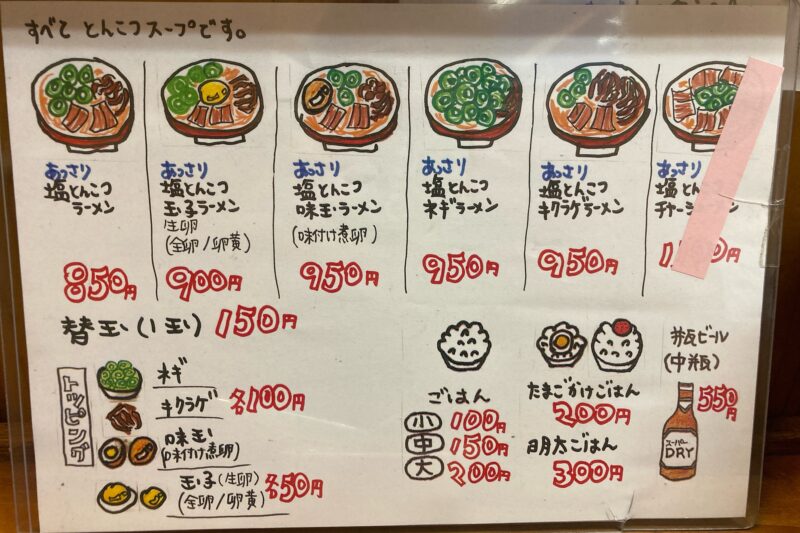 すべて とんこつスープです。
あっさり
塩とんこつ
ラーメン
850円
あっさり
塩とんこつ
玉子ラーメン
生卵
(全卵/卵黄)
900円
あっさり
塩とんこつ
味玉ラーメン
(味付け煮卵)
950円
あっさり
塩とんこつ
ネギラーメン
950円
あっさり
塩とんこつ
キクラゲラーメン
950円
あっさり
塩とん
チャーシ
メン
円
替玉(1玉) 150円
トッピング
ネギ
キクラゲ
各100円
味玉
(味付け煮卵)
玉子(生卵)
(全卵/卵黄)
各50円
ごはん
小 100円
中 150円
大 200円
たまごかけごはん
200円
明太ごはん
300円
瓶ビール
(中瓶)
550円
スーパー
DRY